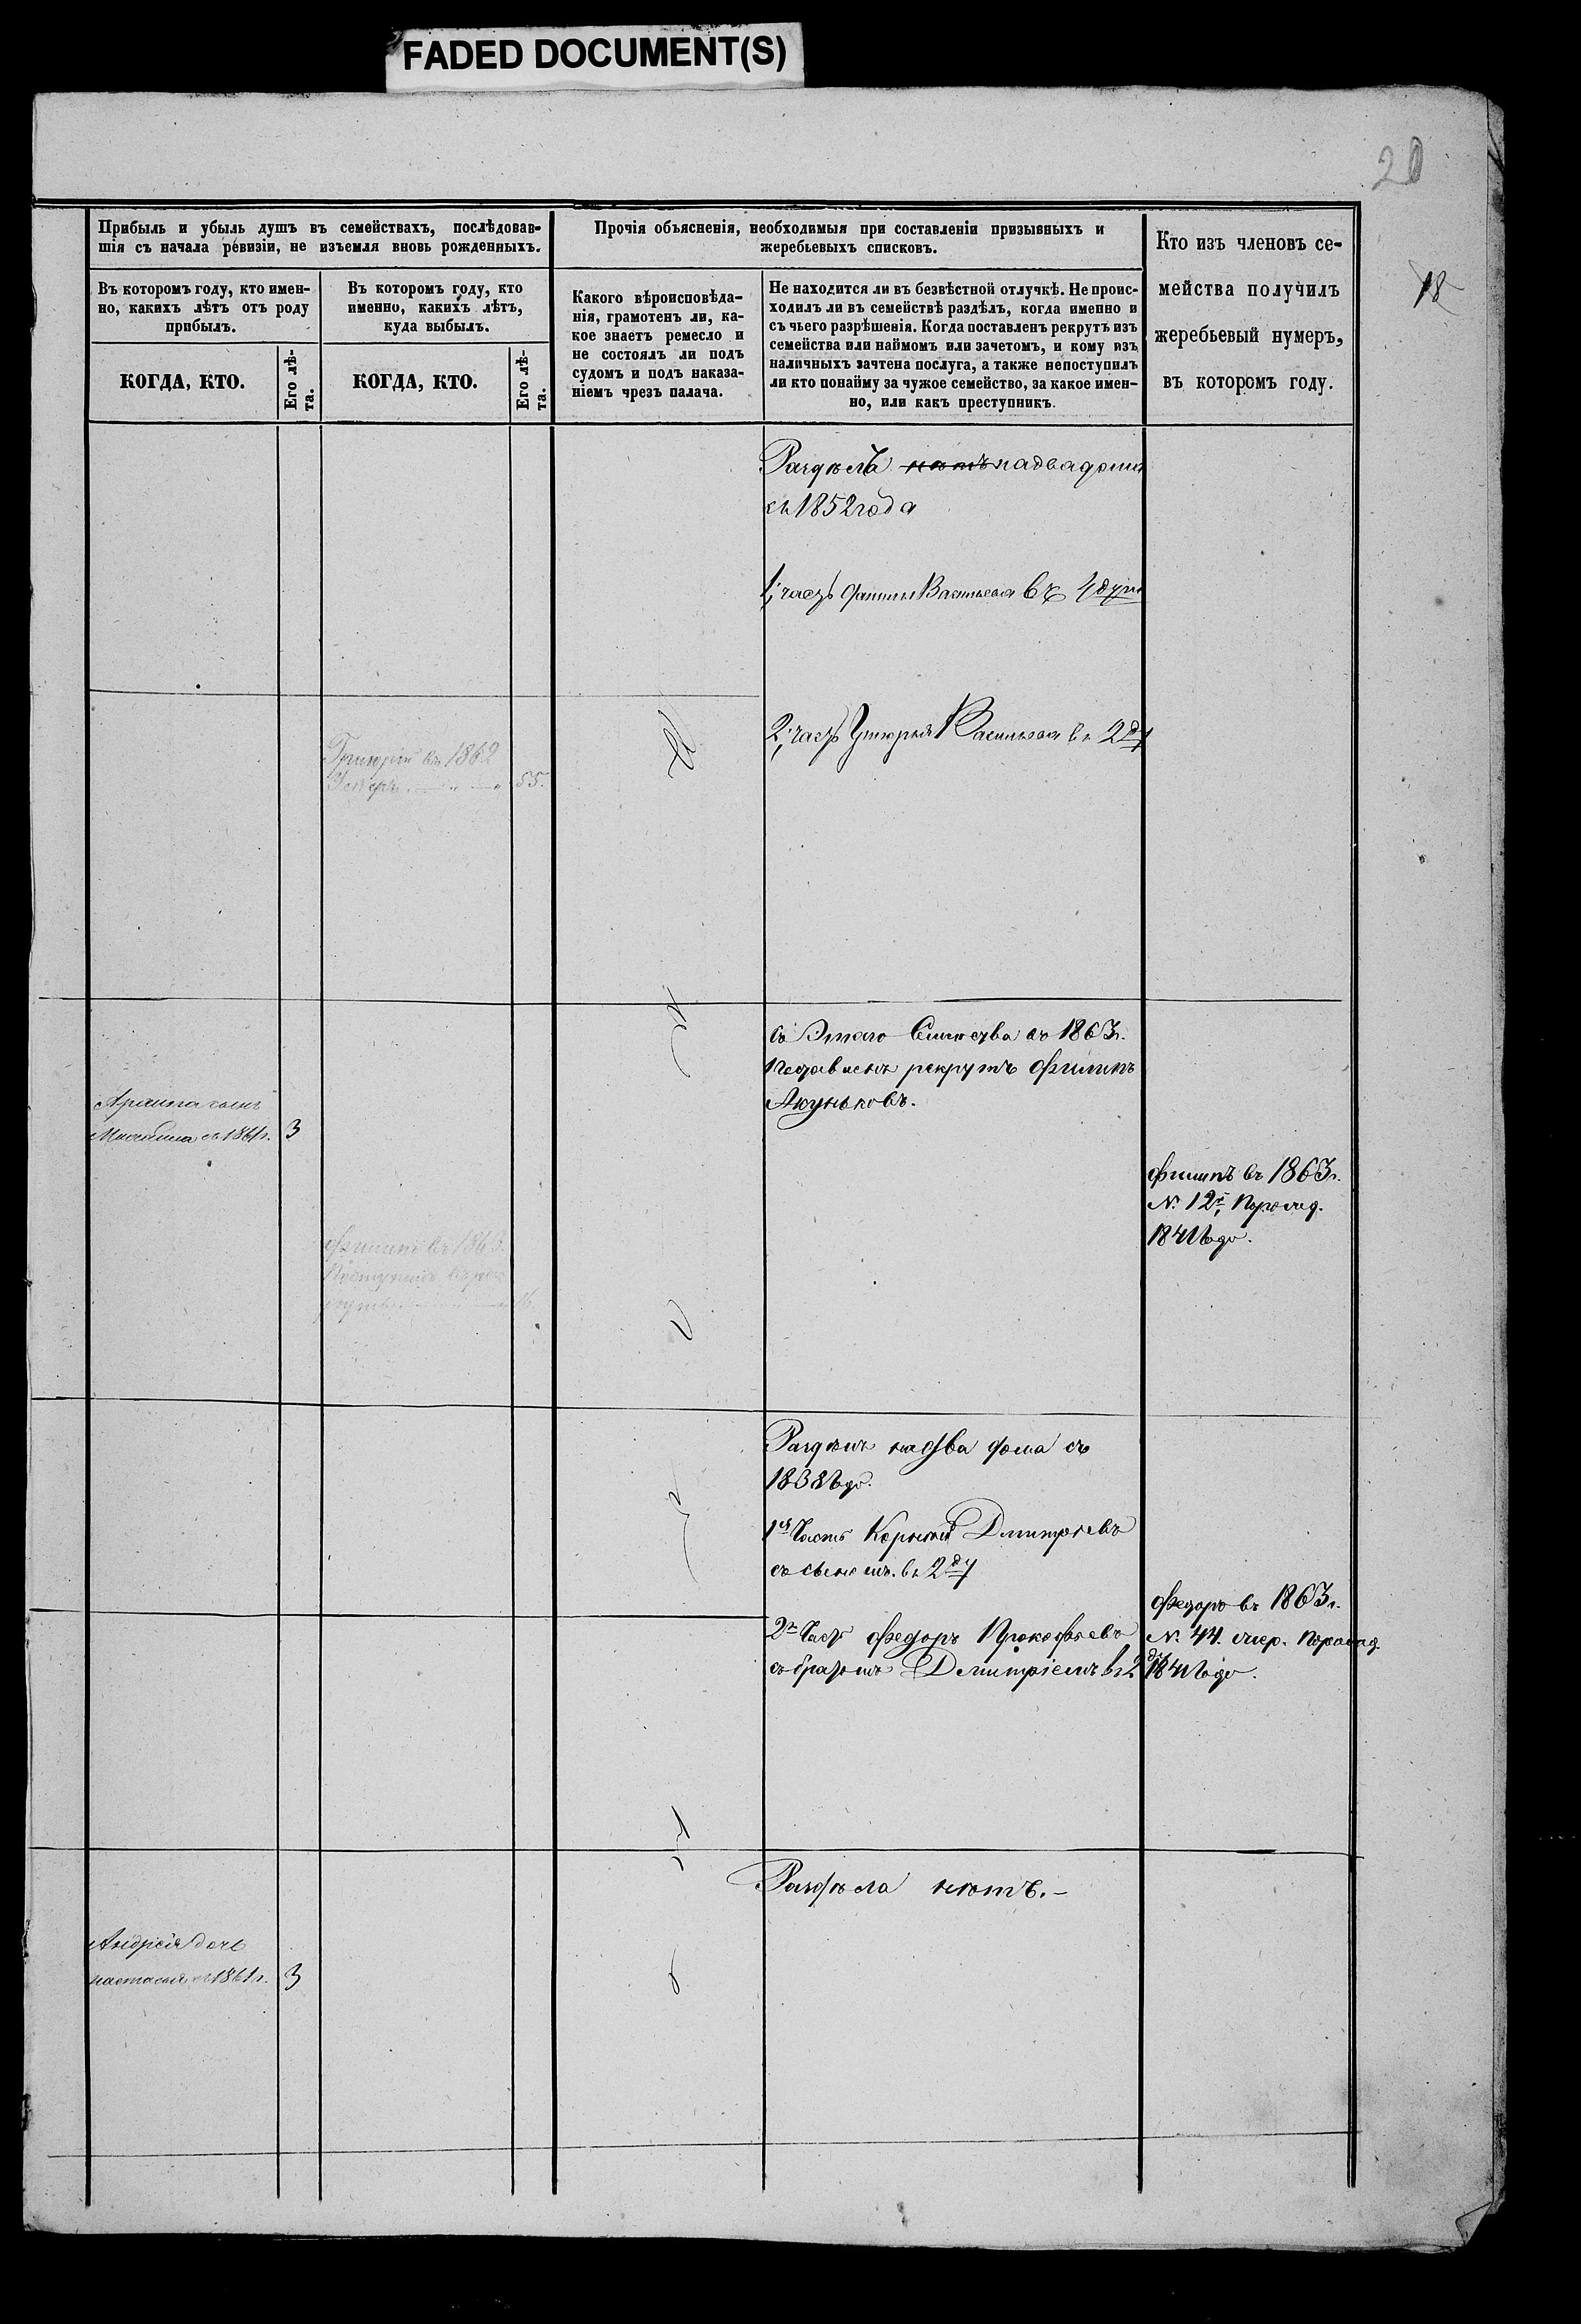 FADED DOCUMENT(S)
20
18
Прибыль и убыль душъ въ семействахъ, послѣдовав-
шія съ начала ревизіи, не изъемля вновь рожденныхъ.
Въ которомъ году, кто имен-
но, какихъ лѣтъ отъ роду
прибылъ.
КОГДА, КТО.
Его лѣ-
та.
Въ которомъ году, кто
именно, какихъ лѣтъ,
куда выбылъ.
КОГДА, КТО.
Его лѣ-
та.
Прочія объясненія, необходимыя при составленіи призывныхъ и
жеребьевыхъ списковъ.
Какого вѣроисповѣда-
нія, грамотенъ ли, ка-
кое знаетъ ремесло и
не состоялъ ли подъ
судомъ и подъ наказа-
ніемъ чрезъ палача.
Не находится ли въ безвѣстной отлучкѣ. Не проис-
ходилъ ли въ семействѣ раздѣлъ, когда именно и
съ чьего разрѣшенія. Когда поставленъ рекрутъ изъ
семейства или наймомъ или зачетомъ, и кому изъ
наличныхъ зачтена послуга, а также непоступилъ
ли кто понайму за чужое семейство, за какое имен-
но, или какъ преступникъ.
Кто изъ членовъ се-
мейства получилъ
жеребьевый нумеръ,
въ которомъ году.
Раздѣлъ нѣтъ на два дома
съ 1852 года
1; часть Васильева въ 4 душ
Григорій въ 1862
Умеръ 55.
2; часть Григорья Васильева въ 2 ду
съ Этаго Семейства въ 1863 г.
рекрутъ Филипъ
Акуньковъ.
сынъ
въ 1861 г. 3
Филипъ въ 1863 г.
№ 12й,
1841 года.
Филипъ въ 1863.
Поступилъ въ рек
руты
Раздѣлъ на два дома съ
1838 года.
1я Часть Корней Дмитріевъ
съ сыномъ. въ 2 ду
2я Часть Федоръ Прокофьевъ
съ братомъ Дмитріемъ въ 2 ду
Федоръ въ 1863 г.
№ 44.
1841 года.
Раздѣла нѣтъ.-
Андрея дочь
настасья въ 1861 г. 3